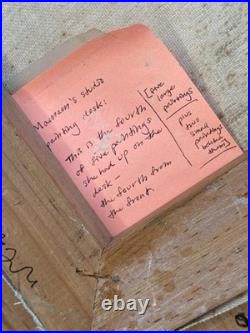 Maureen's studio
painting desk:
This is the fourth
of five paintings
she had up on the
desk –
the fourth from
the front.
large
paintings
plus
two
small
paintings
behind
them